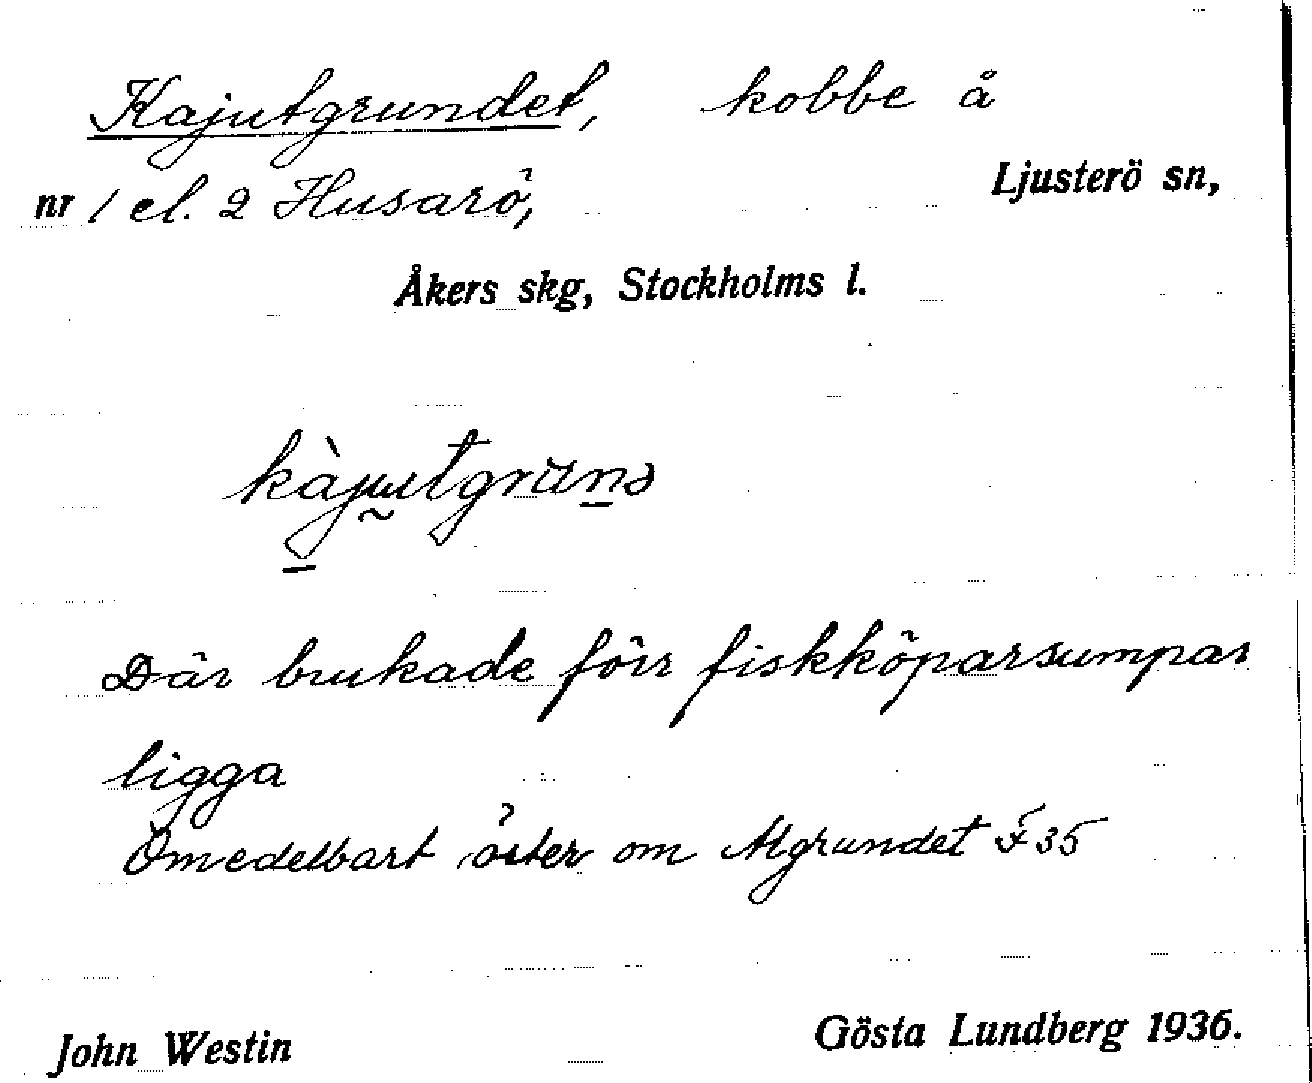 Kajutgrundet, kobbe å
nr 1 el. 2 Husarö, Ljusterö sn,
Åkers skg, Stockholms l.
Där brukade förr fiskköparsumpar
ligga
Omedelbart öster om Algrundet F 35
John Westin Gösta Lundberg 1936.